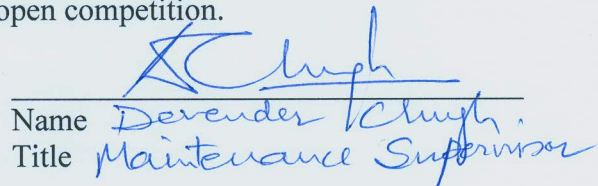 open competition.
Name Devender Chugh
Title Maintenance Supervisor